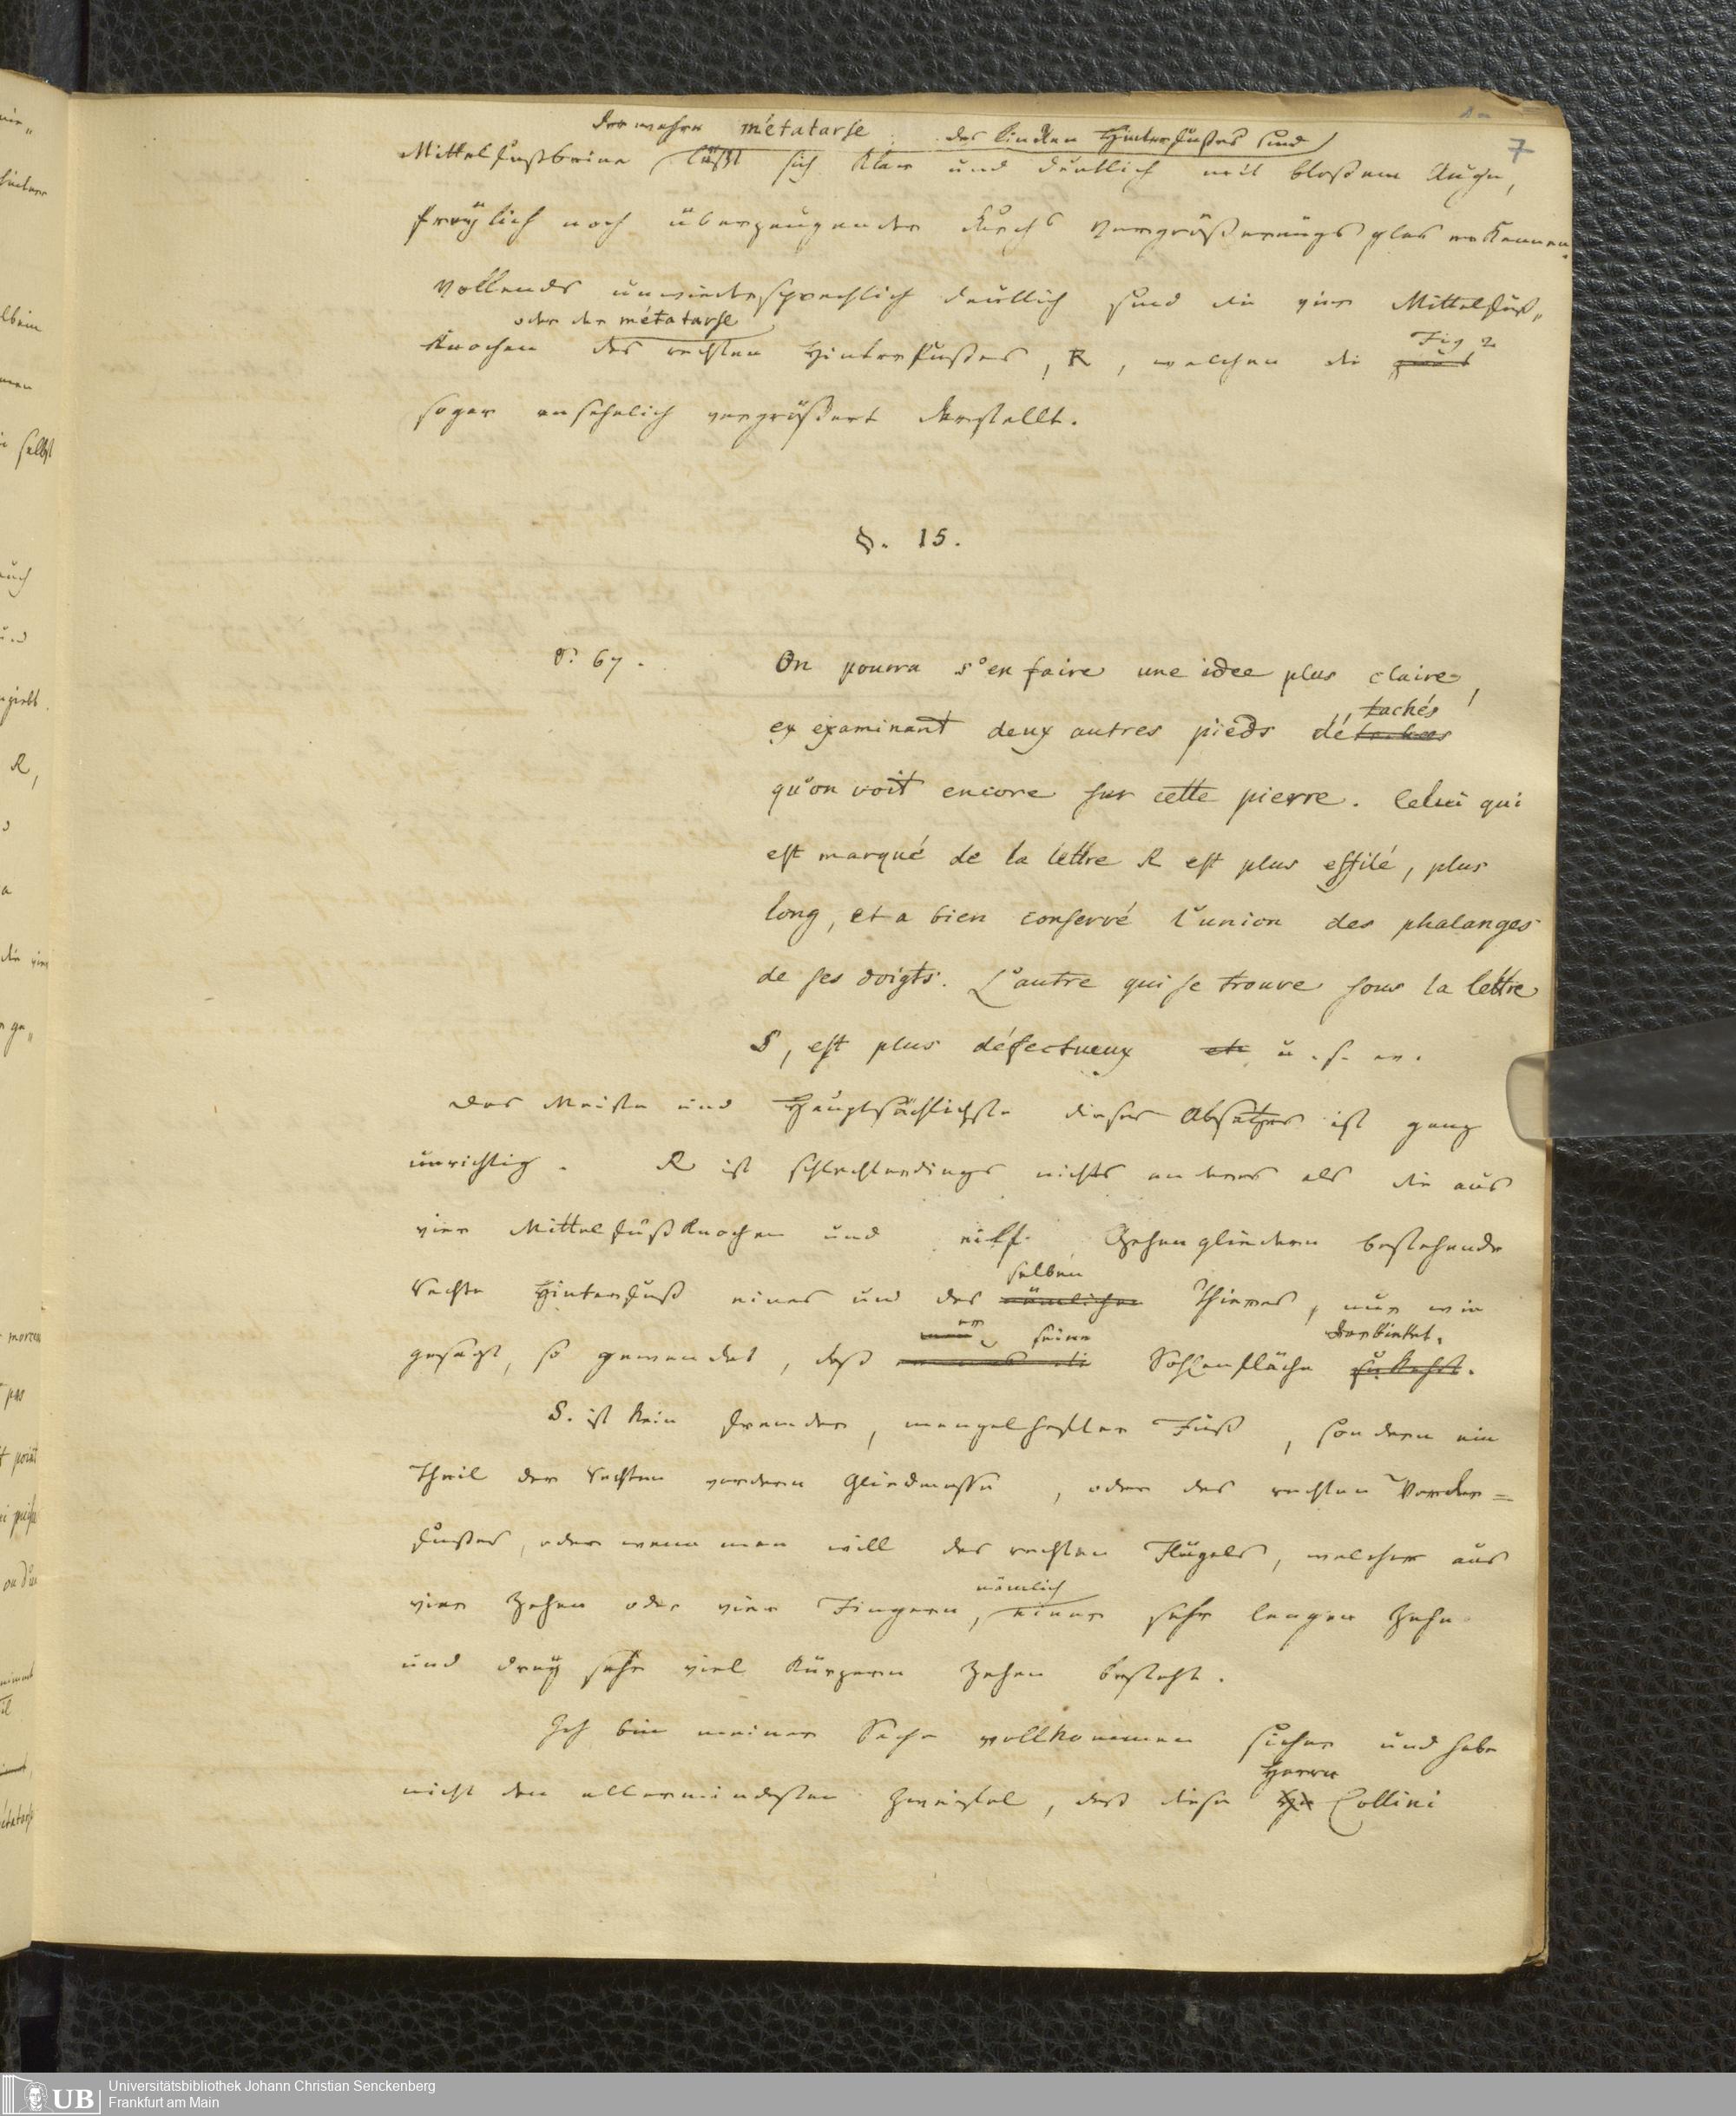 7
der wahre métatarse des linken Hinterfußes sind
Mittelfußbeine läßt sich klar und deutlich mit bloßem Auge,
freÿlich noch überzeugender durchs Vergrößerungsglas erkennen.
Vollends unwiedersprechlich deutlich sind die vier Mittelfuß„
oder der métatarse
knochen des rechten Hinterfußes, R, welchen die Fig 2
sogar ansehnlich vergrößert darstellt.
§. 15.
S. 67.
On pourra s'en faire une idee plus claire,
ex examinant deux autres pieds détachés
qu'on voit encore sur cette pierre. Celui qui
est marqué de la lettre R est plus effilé, plus
long, et a bien conservé l'union des phalanges
de ses doigts. L'autre qui se trouve sous la lettre
S, est plus défectueux etc u. s. w.
Das Meiste und Hauptsächlichste dieses Absatzes ist ganz
unrichtig. R ist schlechterdings nichts anderes als die aus
vier Mittelfußknochen und eilf Zehengliedern bestehende
selben
rechte Hinterfuß eines und des nämlichen Thieres, nur wie
er seine darbietet.
gesagt, so gewendet, daß Sohlenfläche zukehrt.
S. ist kein fremder, mangelhafter Fuß, sondern ein
Theil der rechten vordern Gliedmasse, oder des rechten Vorder=
fußes, oder wenn man will des rechten Flügels, welcher aus
nämlich
vier Zehen oder vier Fingern, einer sehr langen Zehe
und dreÿ sehr viel kürzern Zehen besteht.
Ich bin meiner Sache vollkommen sicher und habe
Herrn
nicht den allermindesten Zweifel, daß diese Hn Collini
Universitätsbibliothek Johann Christian Senckenberg
UB Frankfurt am Main